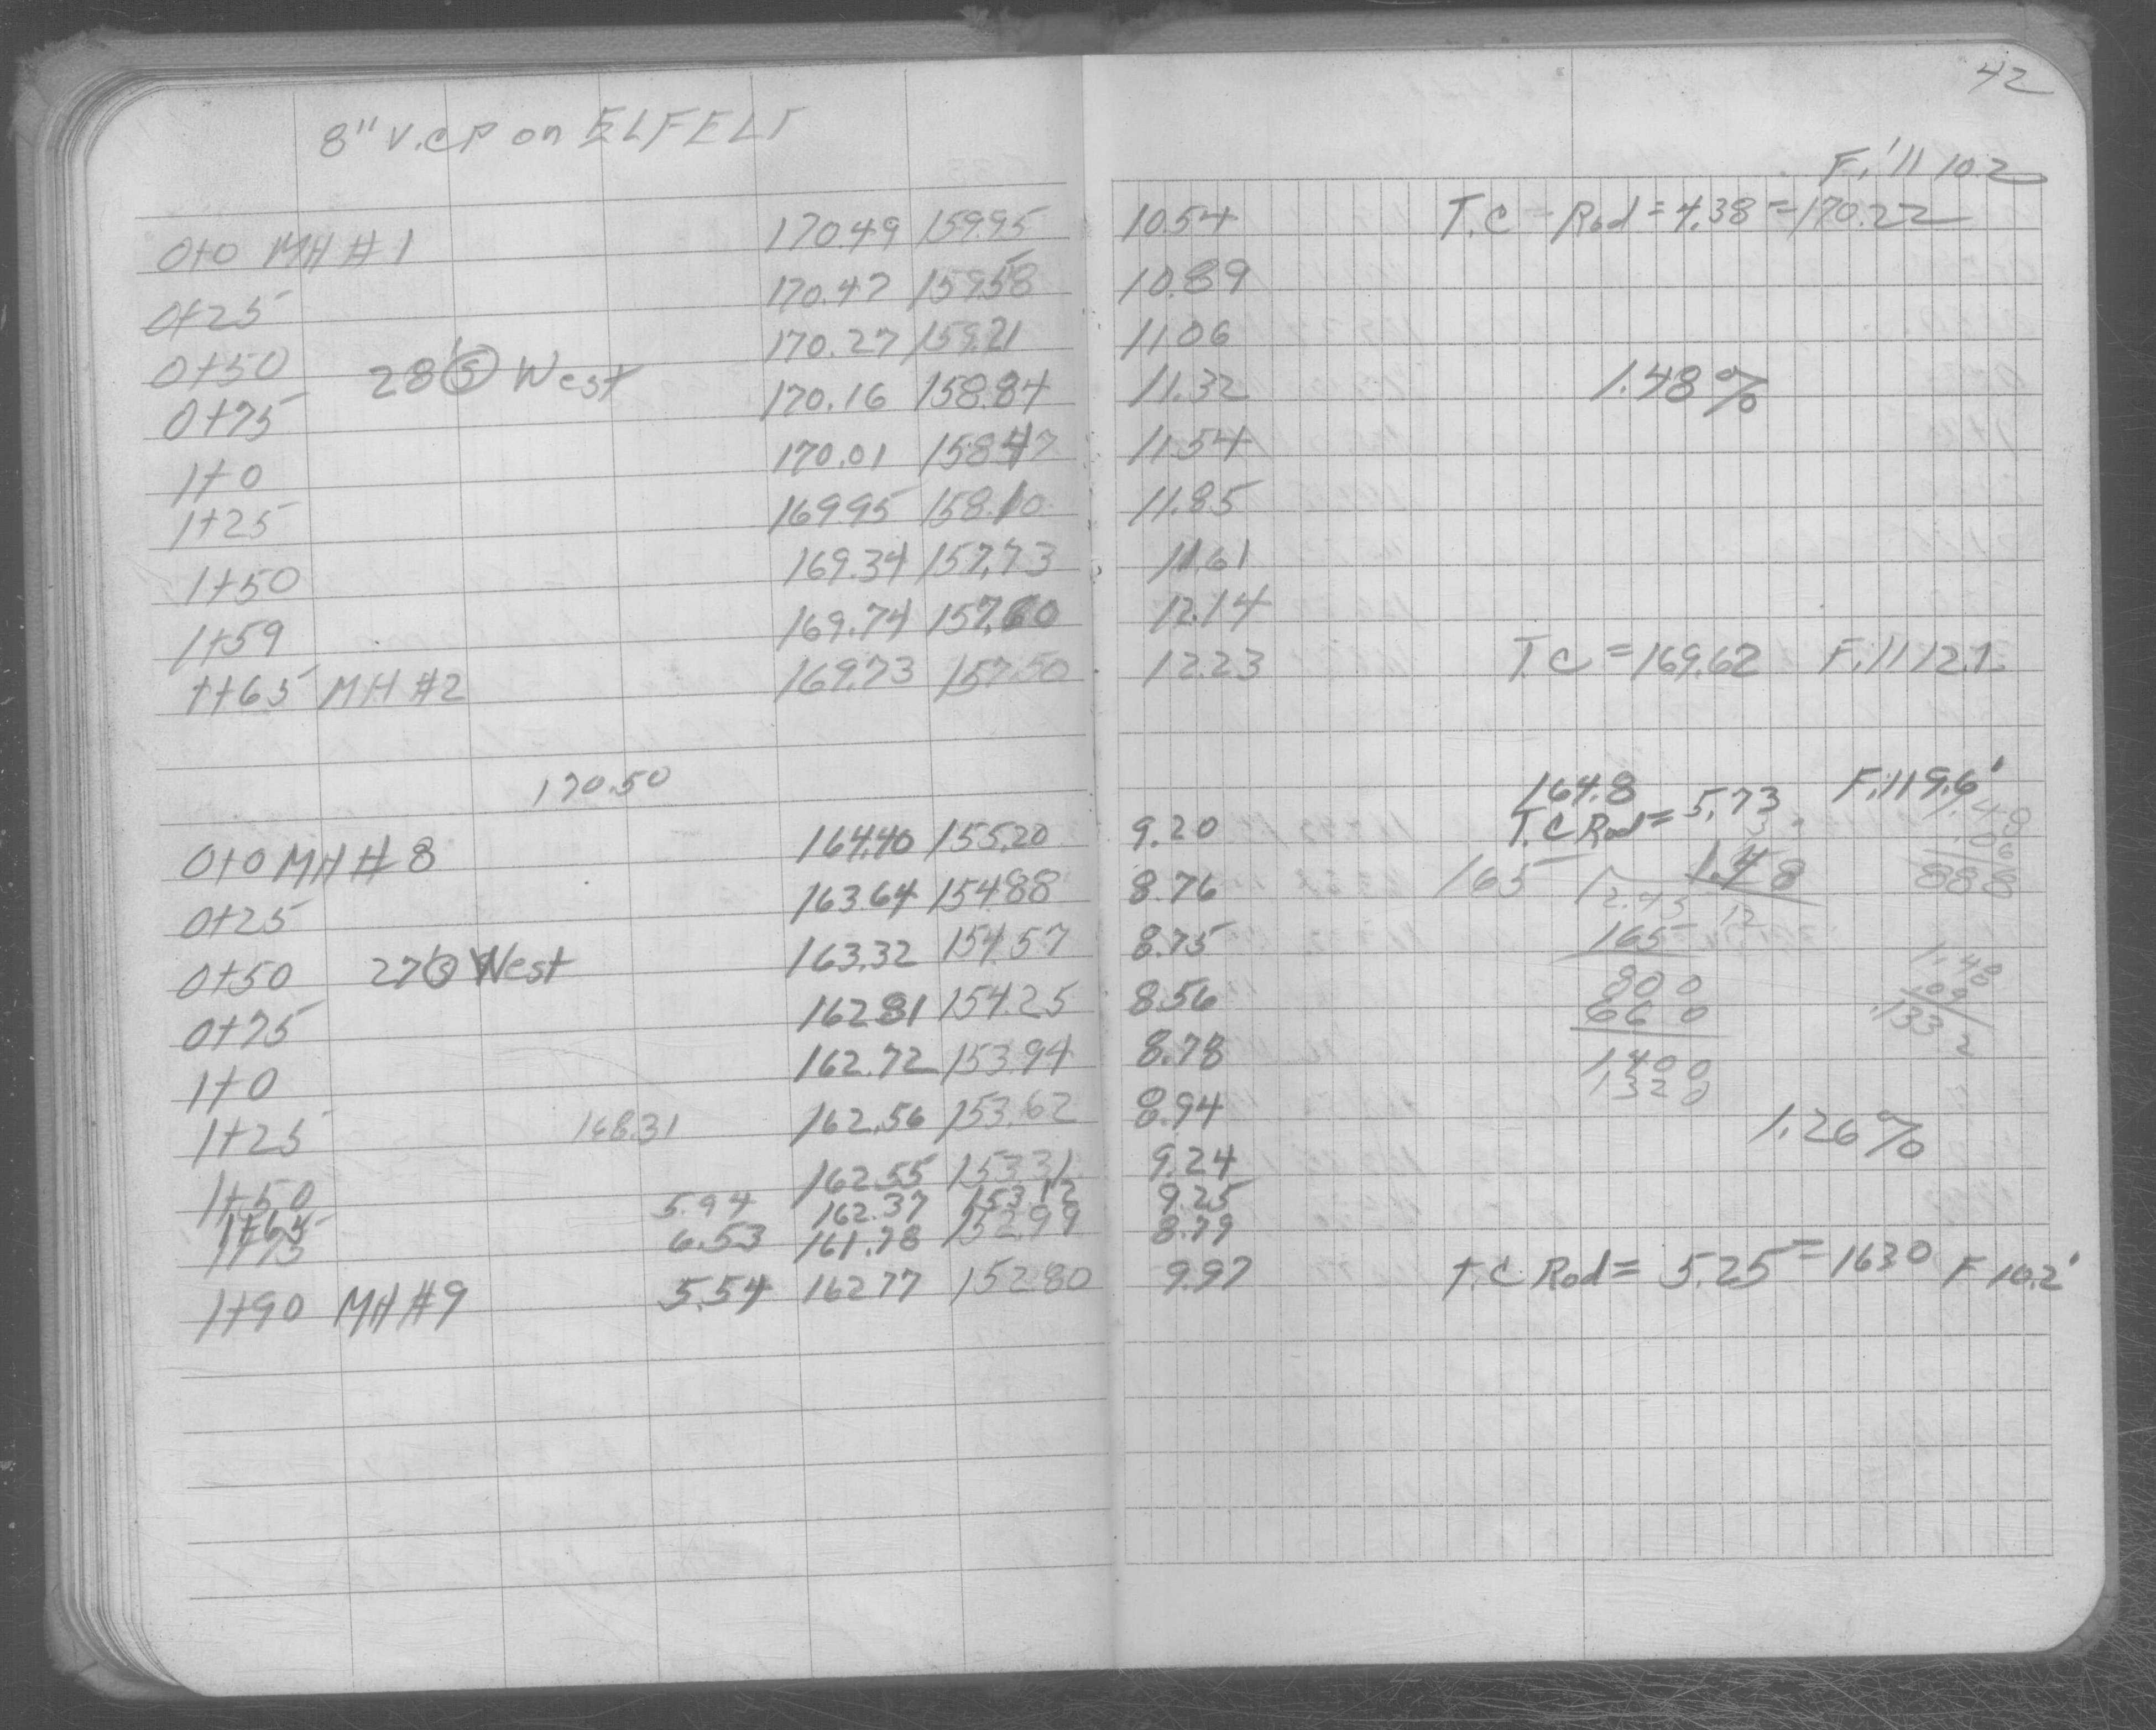 42
8" V.C.P on ELFELT
Fill 10.2
0+0 MH #1 170.49 159.95 10.54 T.C - Rod = 4.38 = 170.22
0+25 170.47 159.58 10.89
0+50 170.27 159.21 11.06
28' S West
0+75 170.16 158.84 11.32 1.48%
1+0 170.01 158.47 11.54
1+25 169.95 158.10 11.85
1+50 169.34 157.73 11.61
1+59 169.74 157.60 12.14
1+65 MH #2 169.73 157.50 12.23 T.C = 169.62 Fill 12.1
170.50
164.8 Fill 9.6'
0+0 MH #8 164.40 155.20 9.20 T.C Rod = 5.73
1.48
.06
888
0+25 163.64 154.88 8.76 165 1.48
2.45 12
0+50 27' S West 163.32 154.57 8.75 165
800
1.48
.09
.1332
0+75 162.81 154.25 8.56 660
1+0 162.72 153.94 8.78 1400
1320
1+25 168.31 162.56 153.62 8.94 1.26%
1+50 162.55 153.31 9.24
1+65 5.94 162.37 153.12 9.25
1+75 6.53 161.78 152.99 8.79
1+90 MH #9 5.54 162.77 152.80 9.97 T.C Rod = 5.25 = 163.0 F 10.2'